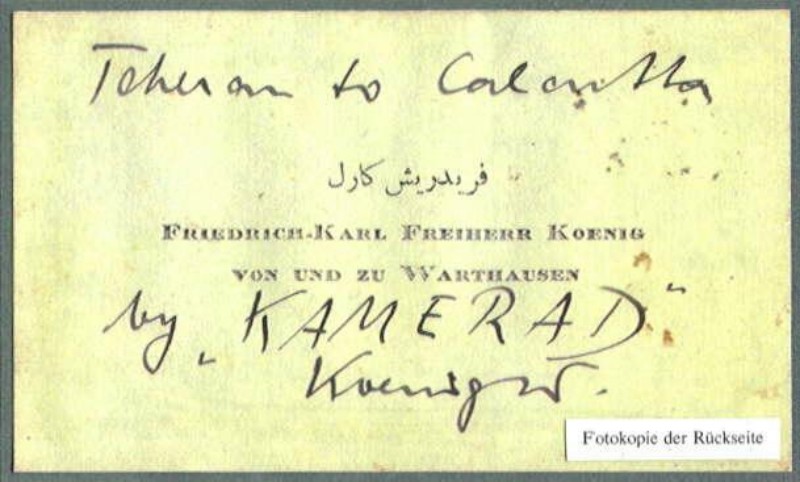 Teheran to Calcutta
فريدريش كارل
FRIEDRICH-KARL FREIHERR KOENIG
VON UND ZU WARTHAUSEN
by „KAMERAD“
KoenigW.
Fotokopie der Rückseite